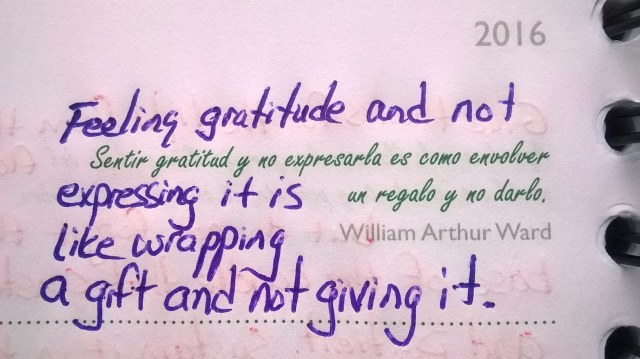 2016
Feeling gratitude and not
Sentir gratitud y no expresarla es como envolver
expressing it is
un regalo y no darlo.
like wrapping
William Arthur Ward
a gift and not giving it.